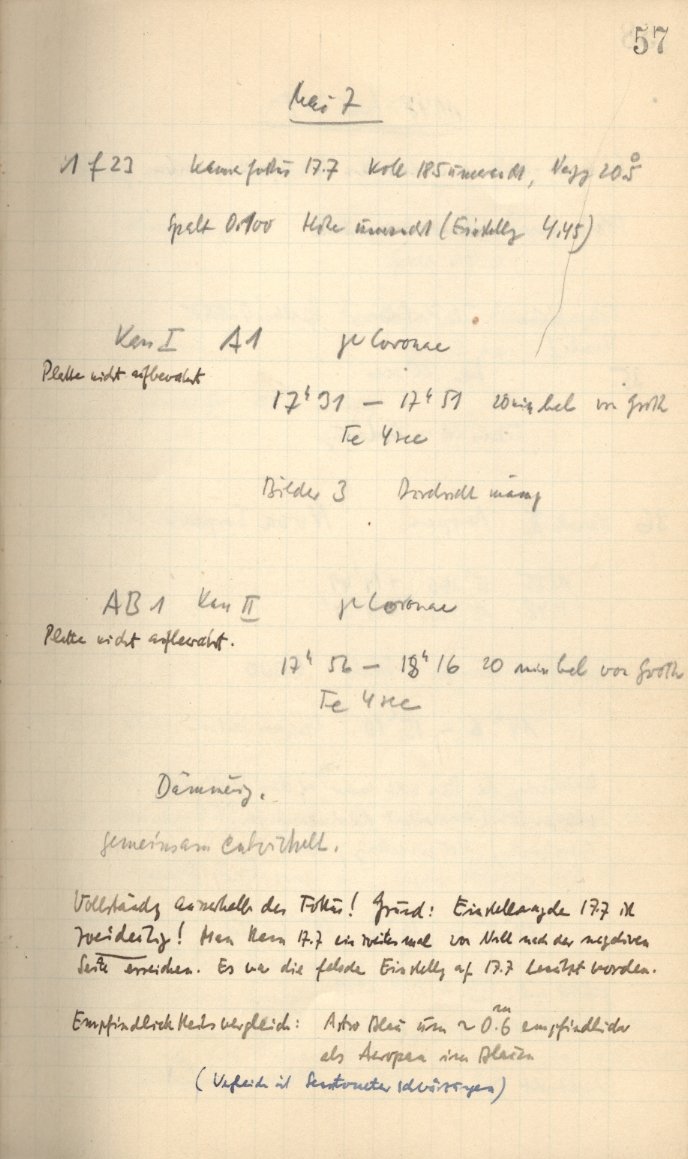 57
Mai 7
1 f 23 Kamerafokus 17.7 Koll 18.5 umverändert, Neigg 20.5°
Spalt 0.100 Höhe unverändert (Einstellg 4.45)
Kass I A1 γ Coronae
Platte nicht aufbewahrt
17ʰ 31 — 17ʰ 51 20 min bel von Groth
Fe 4 sec
Bilder 3 Durchsicht mässg
AB 1 Kass II γ Coronae
Platte nicht aufbewahrt.
17ʰ 56 — 18ʰ 16 20 min bel von Groth
Fe 4 sec
Dämmerg.
gemeinsam entwickelt.
Vollständig ausserhalb des Fokus! Grund: Einstellangabe 17.7 ist
zweideutig! Man kann 17.7 ein zweites mal von Null nach der negativen
Seite erreichen. Es war die falsche Einstellg auf 17.7 benützt worden.
Empfindlichkeitsvergleich: Astro Blau um ~ 0.6ᵐ empfindlicher
als Aeropan im Blauen
(Vergleich mit Sensitometer